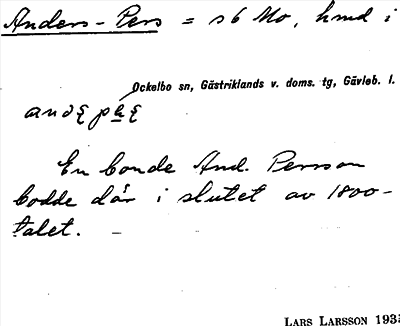 Anders-Pers = s6 Mo, hmd i
Ockelbo sn, Gästriklands v. doms. tg, Gävleb. l.
En bonde And. Persson
bodde där i slutet av 1800-
talet. –
LARS LARSSON 193